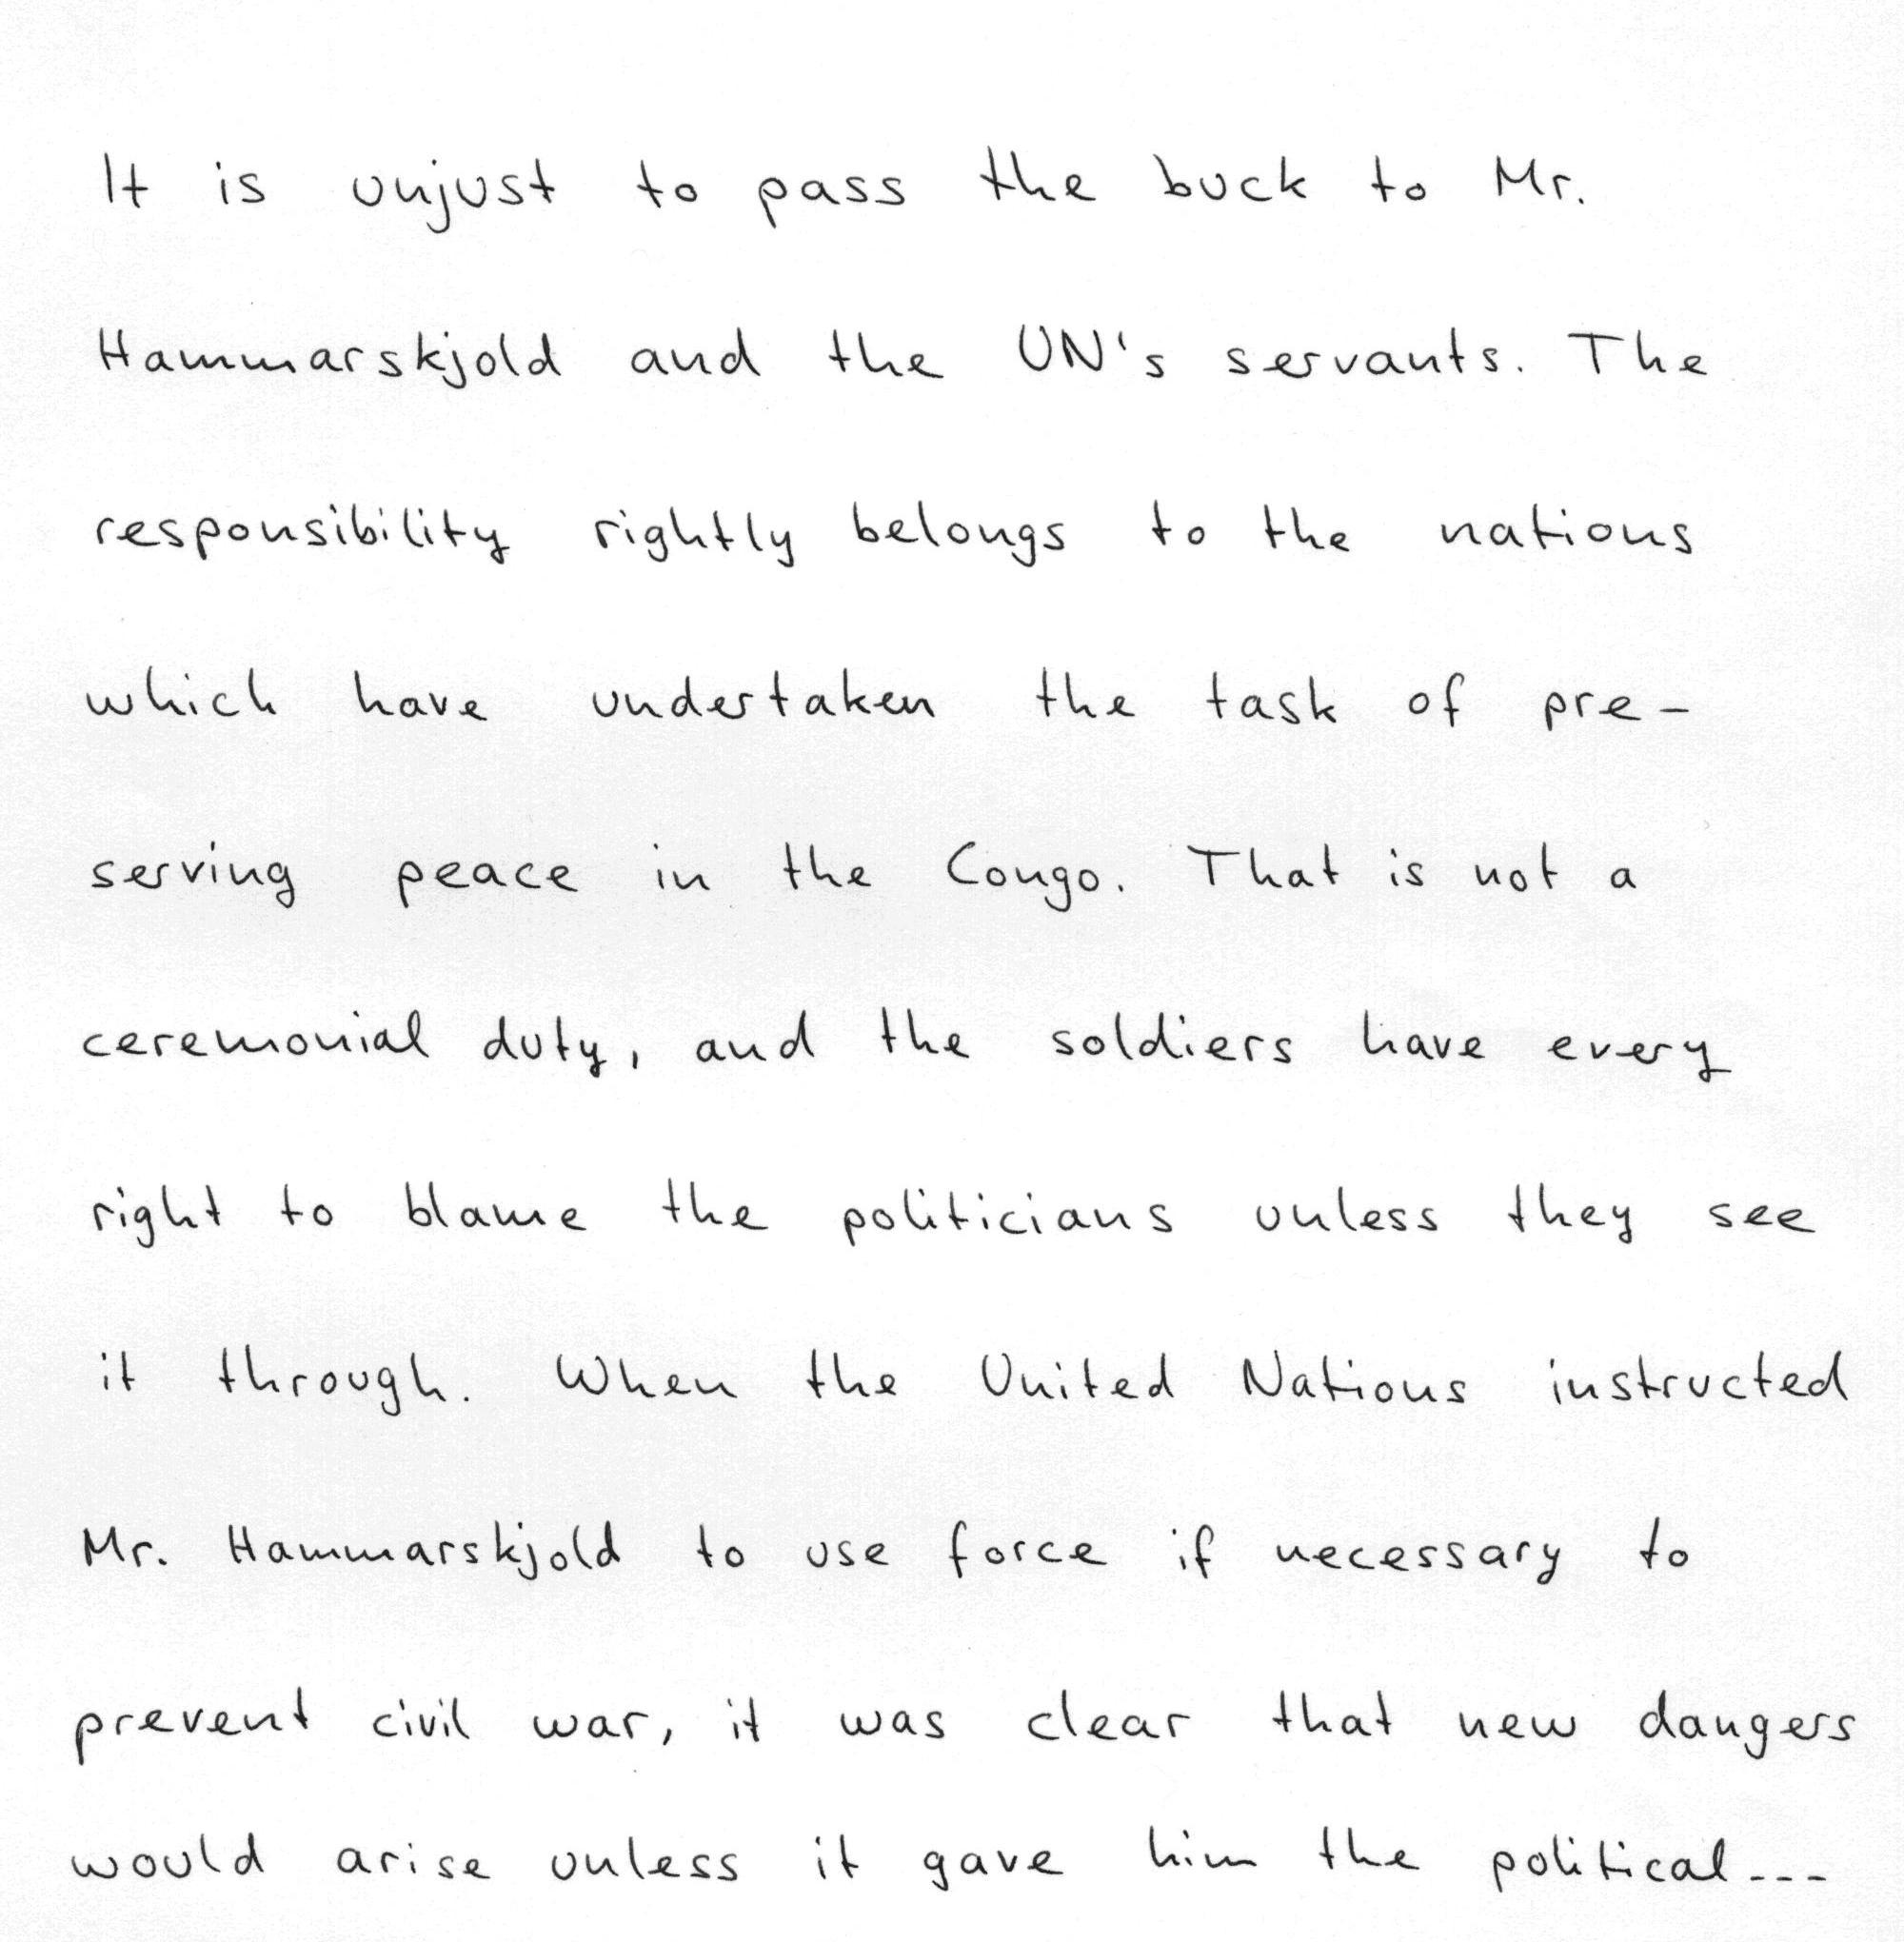 It is unjust to pass the buck to Mr.
Hammarskjold and the UN's servants. The
responsibility rightly belongs to the nations
which have undertaken the task of pre-
serving peace in the Congo. That is not a
ceremonial duty, and the soldiers have every
right to blame the politicians unless they see
it through. When the United Nations instructed
Mr. Hammarskjold to use force if necessary to
prevent civil war, it was clear that new dangers
would arise unless it gave him the political---